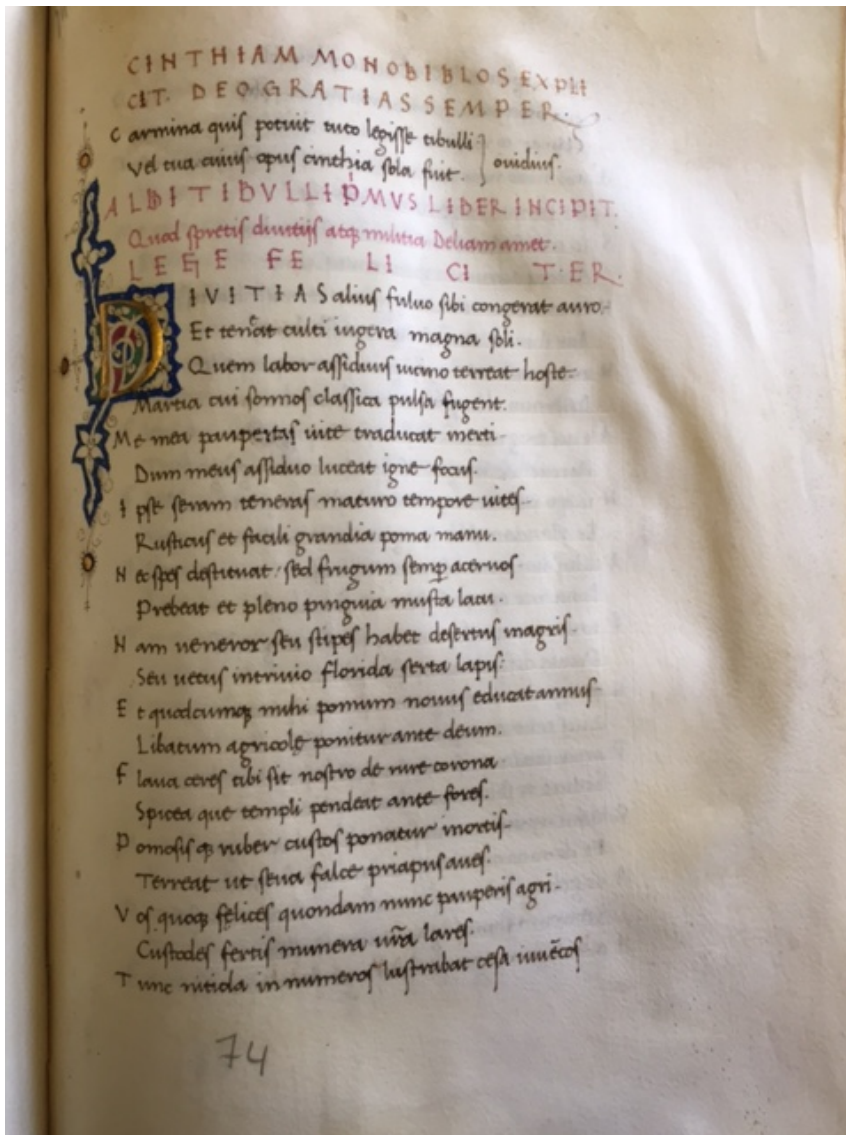 CINTHIAM MONOBIBLOS EXPLI
CIT. DEO GRATIAS SEMPER.
Carmina quis potuit tuto legisse tibulli
Vel tua cuius opus cinthia sola fuit. ouidius.
ALBI TIBVLLI PMVS LIBER INCIPIT.
Quod spretis diuitijs atq militia Deliam amet.
LEGE FELICITER.
DIVITIAS alius fuluo sibi congerat auro.
Et teneat culti iugera magna soli.
Quem labor assiduus uicino terreat hoste.
Martia cui somnos classica pulsa fugent.
Me mea paupertas uite traducat inerti
Dum meus assiduo luceat igne focus.
Ipse seram teneras maturo tempore uites
Rusticus et facili grandia poma manu.
Nec spes destituat: sed frugum semp aceruos
Prebeat et pleno pinguia musta lacu.
Nam ueneror seu stipes habet desertus in agris
Seu uetus in triuio florida serta lapis:
Et quodcumq mihi pomum nouus educat annus
Libatum agricolę ponitur ante deum.
Flaua ceres tibi sit nostro de rure corona
Spicea que templi pendeat ante fores.
Pomosis q ruber custos ponatur in ortis
Terreat ut seua falce priapus aues.
Vos quoq felices quondam nunc pauperis agri
Custodes fertis munera ura lares.
Tunc uitula innumeros lustrabat cesa iuuēcos
74